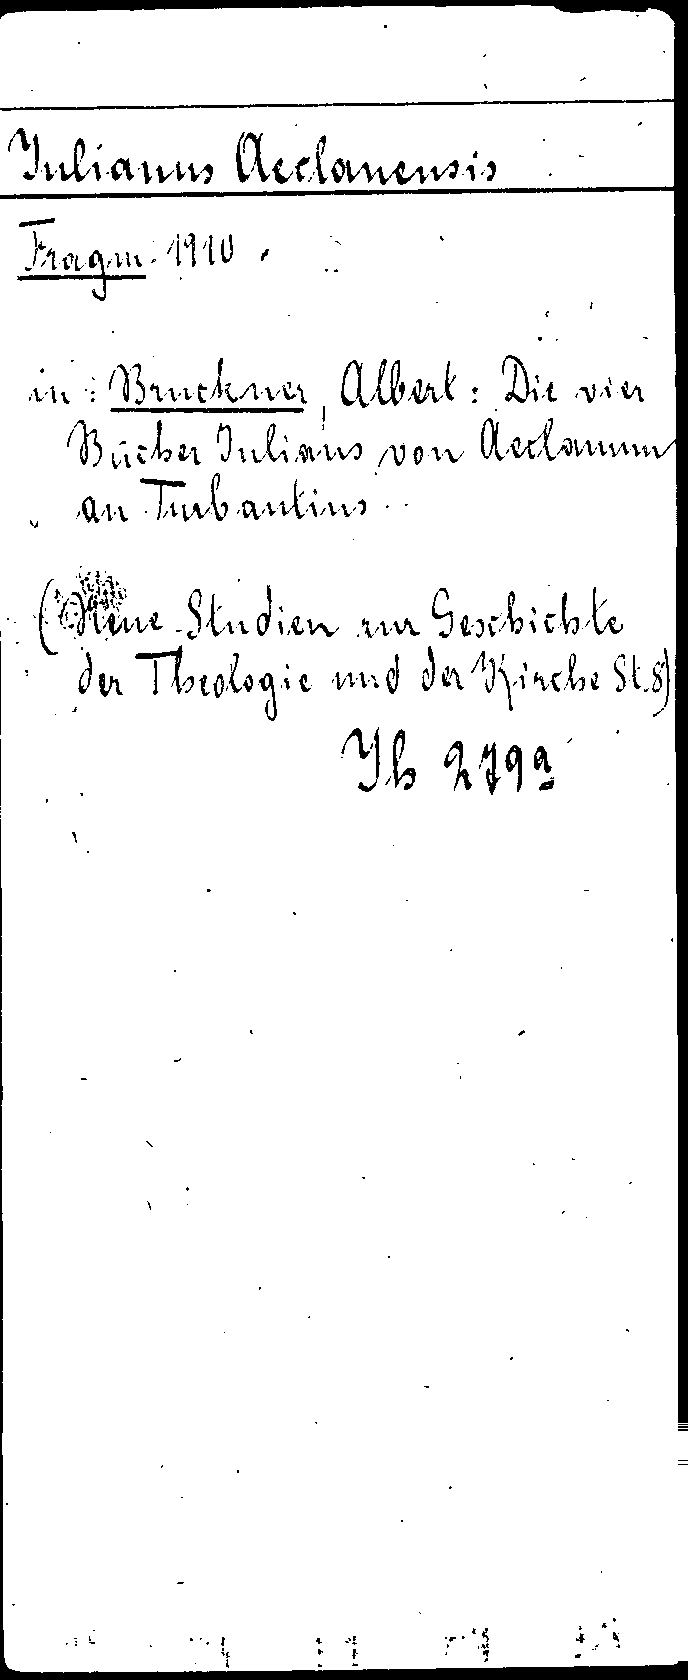 Julianus Aeclanensis
Fragm. 1910.
in: Bruckner, Albert: Die vier
Bücher Julians von Aeclanum
an Turbantius.
(Neue Studien zur Geschichte
der Theologie und der Kirche St. 8)
Jb 279a